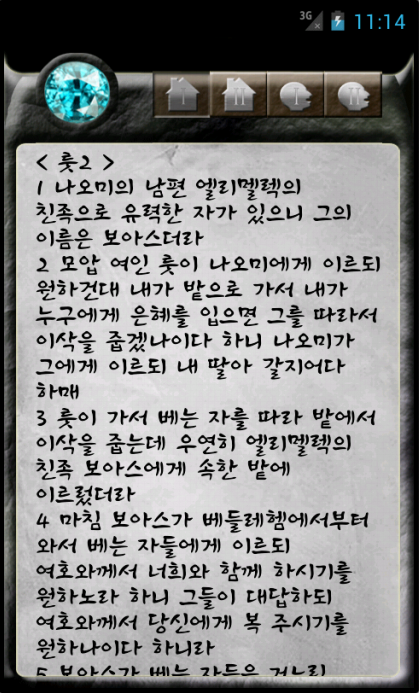 3G
11:14
I II I II
< 룻2 >
1 나오미의 남편 엘리멜렉의
친족으로 유력한 자가 있으니 그의
이름은 보아스더라
2 모압 여인 룻이 나오미에게 이르되
원하건대 내가 밭으로 가서 내가
누구에게 은혜를 입으면 그를 따라서
이삭을 줍겠나이다 하니 나오미가
그에게 이르되 내 딸아 갈지어다
하매
3 룻이 가서 베는 자를 따라 밭에서
이삭을 줍는데 우연히 엘리멜렉의
친족 보아스에게 속한 밭에
이르렀더라
4 마침 보아스가 베들레헴에서부터
와서 베는 자들에게 이르되
여호와께서 너희와 함께 하시기를
원하노라 하니 그들이 대답하되
여호와께서 당신에게 복 주시기를
원하나이다 하니라
5 보아스가 베는 자들을 거느린